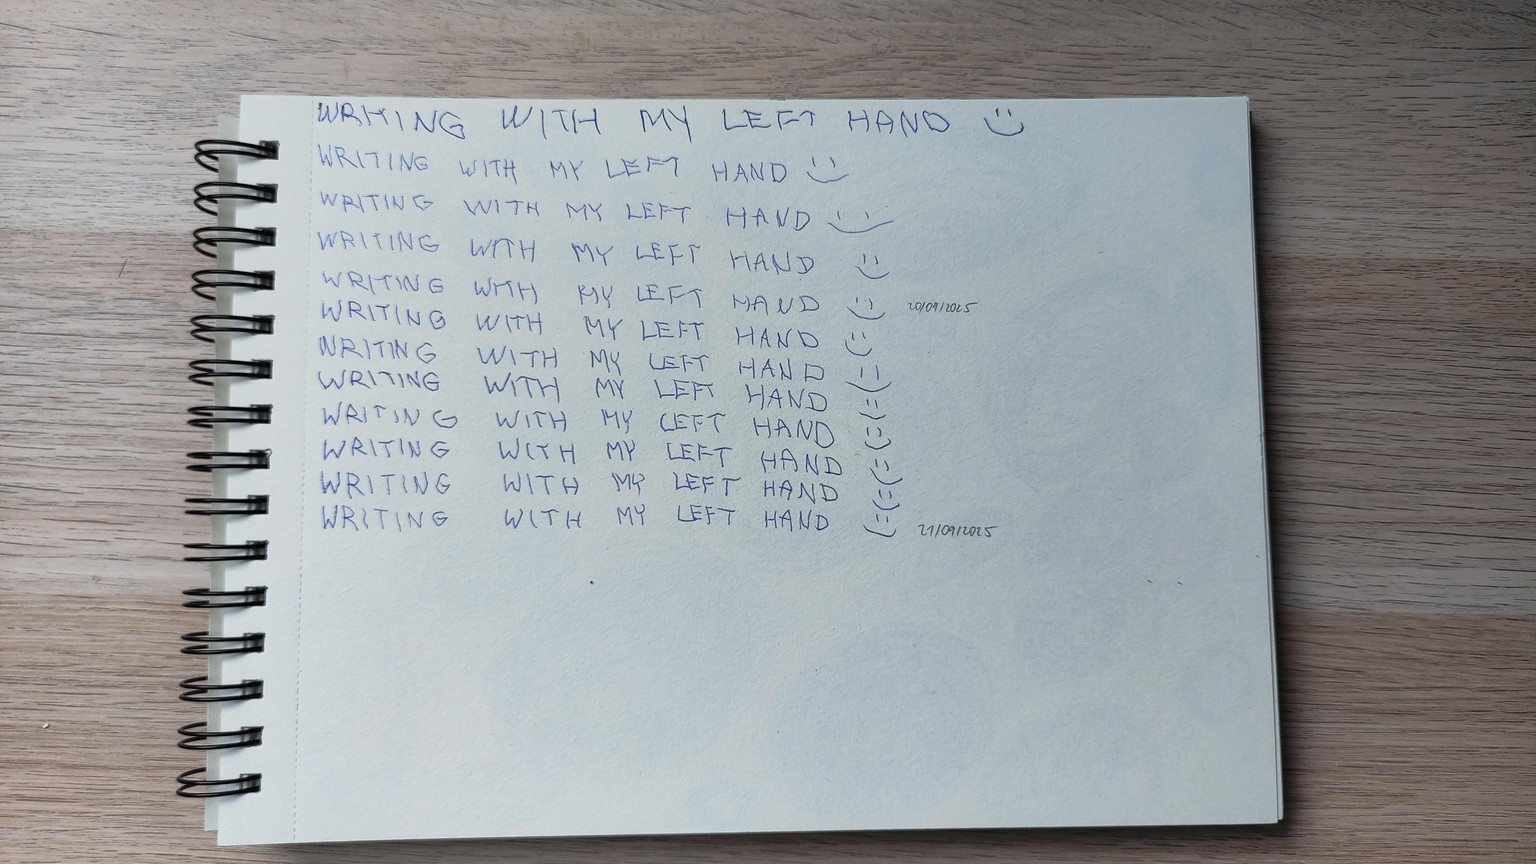 WRITING WITH MY LEFT HAND :)
WRITING WITH MY LEFT HAND :)
WRITING WITH MY LEFT HAND :)
WRITING WITH MY LEFT HAND :)
WRITING WITH MY LEFT HAND :) 20/09/2025
WRITING WITH MY LEFT HAND (:
WRITING WITH MY LEFT HAND :)
WRITING WITH MY LEFT HAND (:
WRITING WITH MY LEFT HAND (:
WRITING WITH MY LEFT HAND (:
WRITING WITH MY LEFT HAND (:
WRITING WITH MY LEFT HAND (: 21/09/2025